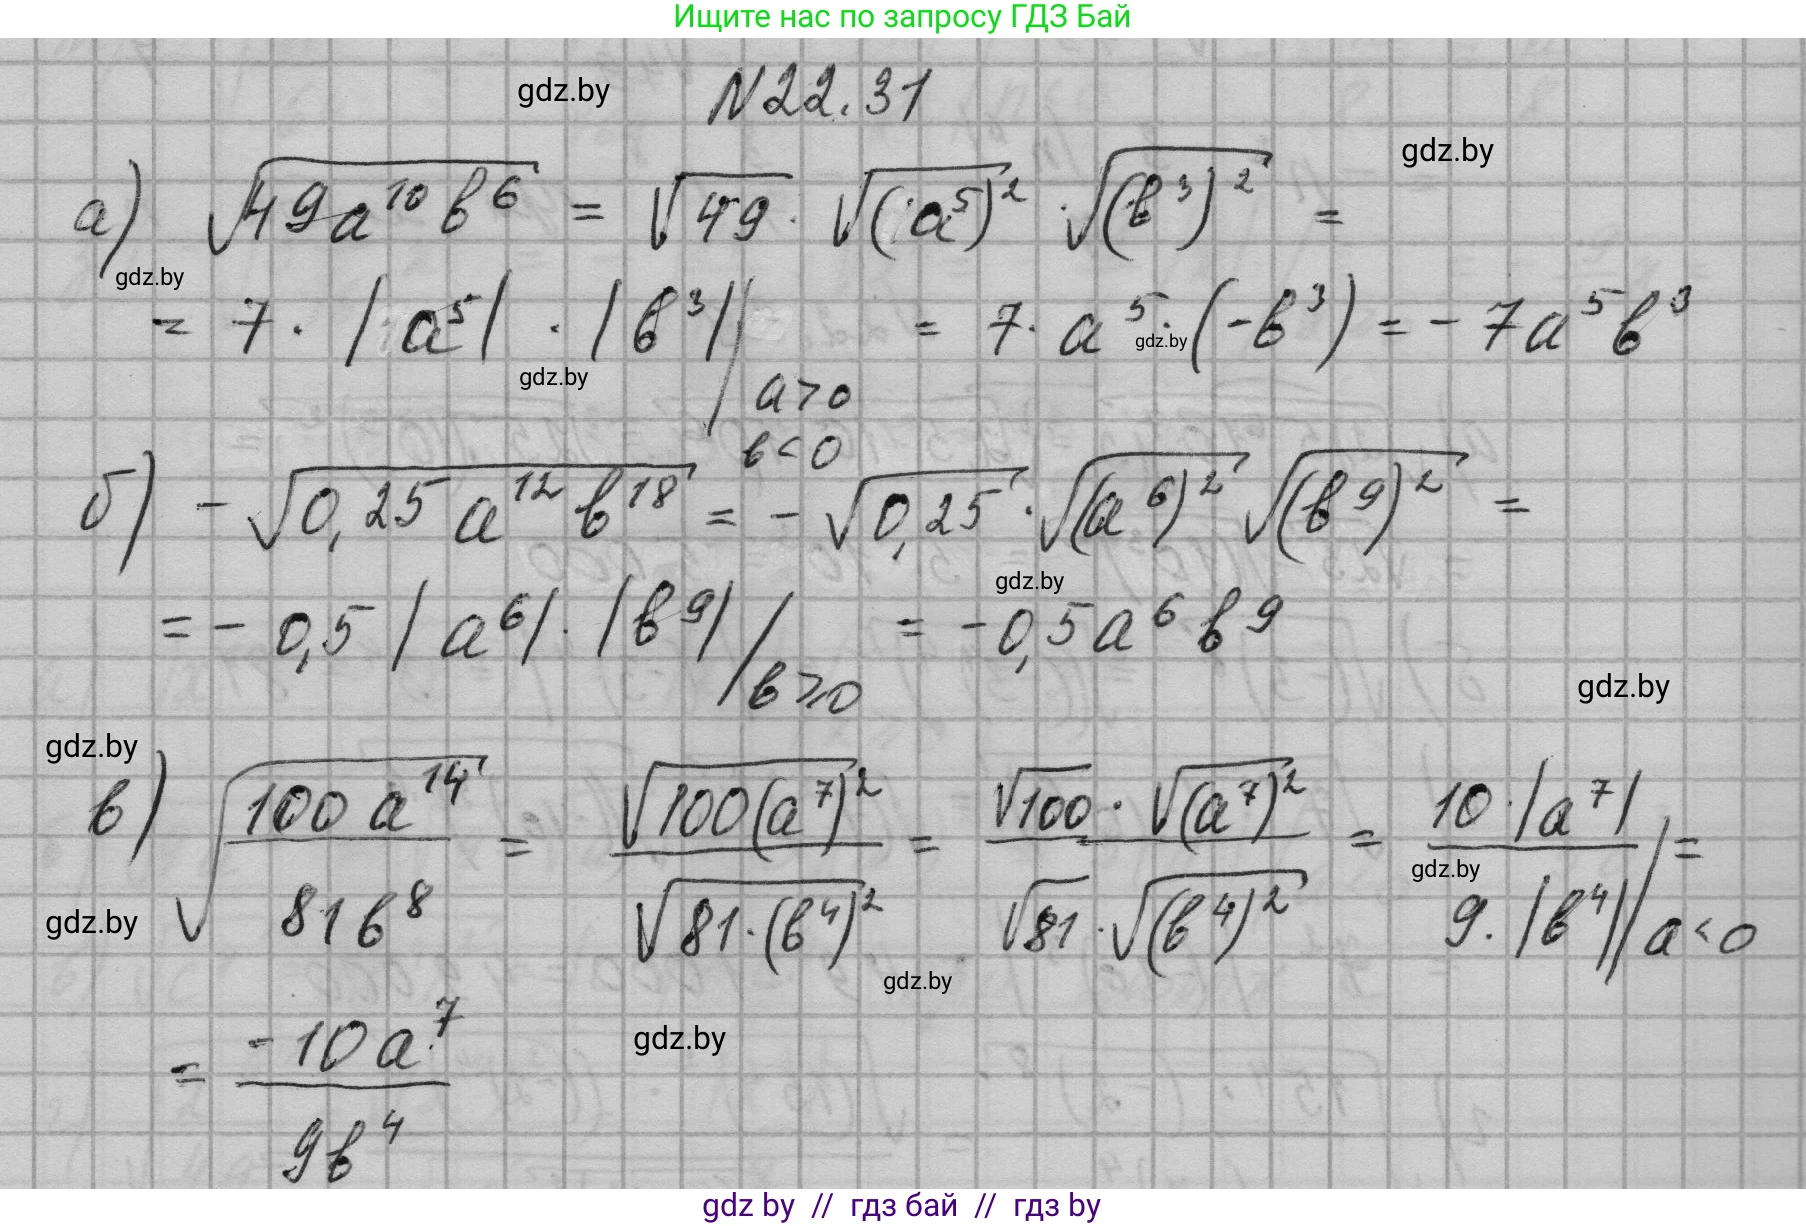 Ищите нас по запросу ГДЗ Бай
gdz.by
N22.31
gdz.by
а) √(49a¹⁰b⁶) = √49 · √((a⁵)²) · √((b³)²) =
gdz.by
= 7 · |a⁵| · |b³| | a>0 b<0 = 7 · a⁵ · (-b³) = -7a⁵b³
gdz.by
gdz.by
б) -√(0,25a¹²b¹⁸) = -√0,25 · √((a⁶)²) √((b⁹)²) =
gdz.by
= -0,5 |a⁶| · |b⁹| / b⩾0 = -0,5a⁶b⁹
gdz.by
gdz.by
в) √(100a¹⁴ / 81b⁸) = √(100(a⁷)²) / √(81·(b⁴)²) = √100 · √((a⁷)²) / √81 · √((b⁴)²) = 10·|a⁷| / 9·|b⁴| | a<0 =
gdz.by
gdz.by
gdz.by
= -10a⁷ / 9b⁴
gdz.by
gdz by // гдз бай // гдз by